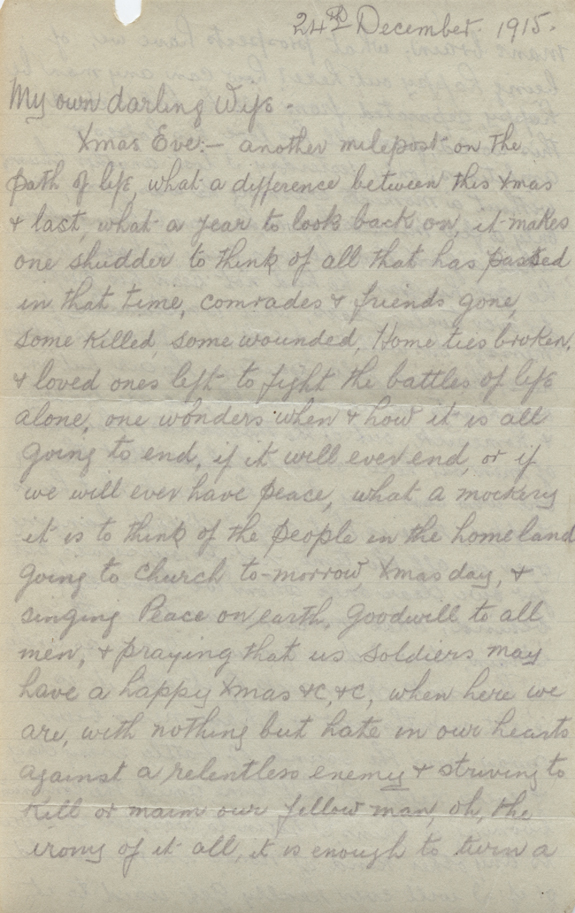 24th December. 1915.
My own darling Wife.
Xmas Eve:— another milepost on the
path of life, what a difference between this Xmas
& last, what a year to look back on, it makes
one shudder to think of all that has passed
in that time, comrades & friends gone,
some killed, some wounded, Home ties broken,
& loved ones left to fight the battles of life
alone, one wonders when & how it is all
going to end, if it will ever end, or if
we will ever have peace, what a mockery
it is to think of the people in the homeland
going to church to-morrow Xmas day, &
singing Peace on earth, goodwill to all
men, & praying that us soldiers may
have a happy Xmas &c, &c, when here we
are, with nothing but hate in our hearts
against a relentless enemy & striving to
kill or maim our fellow man, oh, the
irony of it all, it is enough to turn a